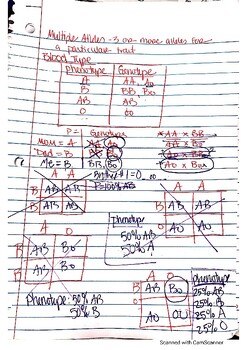 Multiple Alleles - 3 or more alleles for
a particular trait
Blood Type
Phenotype Genotype
A AA, Ao
B BB, Bo
AB AB
O oo
P1 Genotype
Mom = A AA Ao
Dad = B BB Bo
Me = B BB, Bo
AA x BB
AA x Bo
Ao x BB
Ao x Bo
Brother #1 = O
100% AB
A A
B AB AB
B AB AB
A A
B AB AB
O Ao Ao
Phenotype
50% AB
50% A
A O
B AB Bo
B AB Bo
Phenotype: 50% AB
50% B
A O
B AB Bo
O Ao OO
Phenotype
25% AB
25% B
25% A
25% O
Scanned with CamScanner